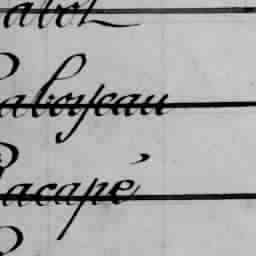 abot
Raboyeau
Racapé